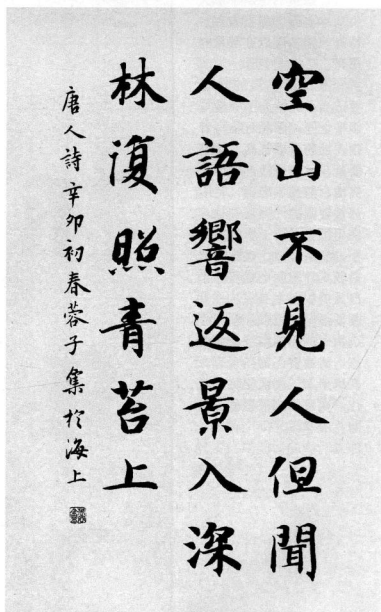 空山不見人但聞
人語響返景入深
林復照青苔上
唐人詩辛卯初春蓉子集於海上